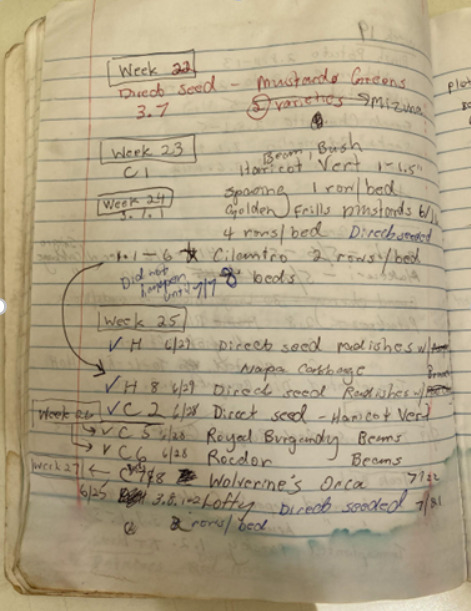 19
Week 22
Direct seed - Mustards Greens
3.7 5 varieties → Mizuna
Week 23
Bean, Bush
C1 Haricot Vert 1-1.5"
Week 24
spacing 1 row/bed
3.1.1 Golden Frills mustards 6/
4 rows/bed Direct seeded
1-6 Cilantro 2 rows/bed
Did not happen until 7/7 8 beds
Week 25
✓ H 6/29 Direct seed radishes w/
Napa Cabbage
✓ H 8 6/29 Direct seed Radishes w/
Week 26 ✓ C 2 6/28 Direct seed - Haricot Vert
→ ✓ C 5 6/28 Royal Burgundy Beans
→ ✓ C 6 6/28 Rocdor Beans
Week 27 ← 8 Wolverine's Orca 7/22
6/25 3.8.1-2 Lofty Direct seeded 7/21
2 rows/bed